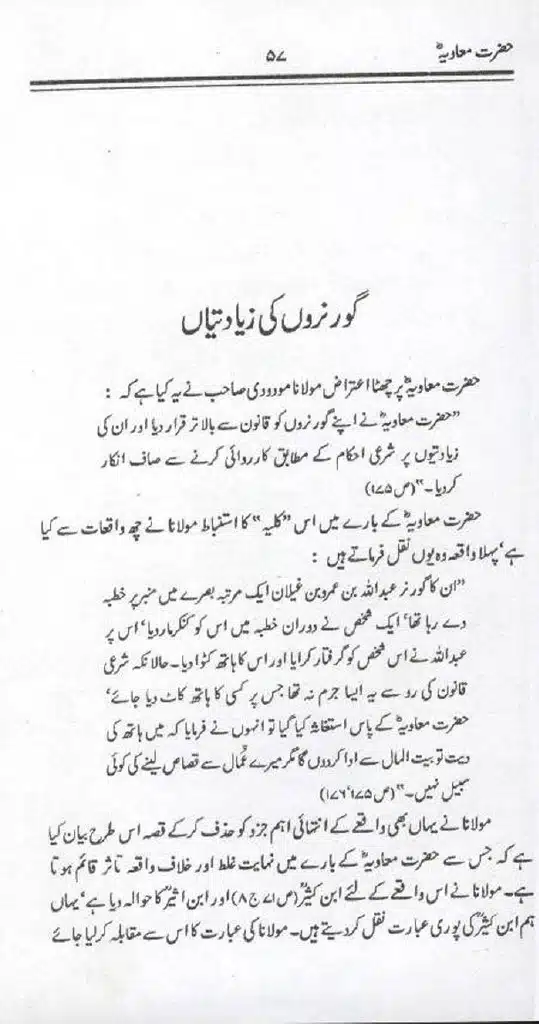 حضرت معاویہؓ
۵۷
گورنروں کی زیادتیاں
حضرت معاویہؓ پر چھٹا اعتراض مولانا مودودی صاحب نے یہ کیا ہے کہ :
"حضرت معاویہؓ نے اپنے گورنروں کو قانون سے بالاتر قرار دیا اور ان کی
زیادتیوں پر شرعی احکام کے مطابق کارروائی کرنے سے صاف انکار
کردیا۔" (ص ۱۷۵)
حضرت معاویہؓ کے بارے میں اس "کلیہ" کا استنباط مولانا نے چھ واقعات سے کیا
ہے، پہلا واقعہ وہ یوں نقل فرماتے ہیں :
"ان کا گورنر عبداللہ بن عمرو بن غیلان ایک مرتبہ بصرے میں منبر پر خطبہ
دے رہا تھا، ایک شخص نے دوران خطبہ میں اس کو کنکر مار دیا، اس پر
عبداللہ نے اس شخص کو گرفتار کرایا اور اس کا ہاتھ کٹوا دیا۔ حالانکہ شرعی
قانون کی رو سے یہ ایسا جرم نہ تھا جس پر کسی کا ہاتھ کاٹ دیا جائے،
حضرت معاویہؓ کے پاس استغاثہ کیا گیا تو انہوں نے فرمایا کہ میں ہاتھ کی
دیت تو بیت المال سے ادا کردوں گا مگر میرے عُمّال سے قصاص لینے کی کوئی
سبیل نہیں۔" (ص ۱۷۵، ۱۷۶)
مولانا نے یہاں بھی واقعے کے انتہائی اہم جزو کو حذف کرکے قصہ اس طرح بیان کیا
ہے کہ جس سے حضرت معاویہؓ کے بارے میں نہایت غلط اور خلاف واقعہ تاثر قائم ہوتا
ہے۔ مولانا نے اس واقعے کے لئے ابن کثیرؒ (ص ۷۱ ج ۸) اور ابن اثیرؒ کا حوالہ دیا ہے، یہاں
ہم ابن کثیرؒ کی پوری عبارت نقل کردیتے ہیں۔ مولانا کی عبارت کا اس سے مقابلہ کرلیا جائے